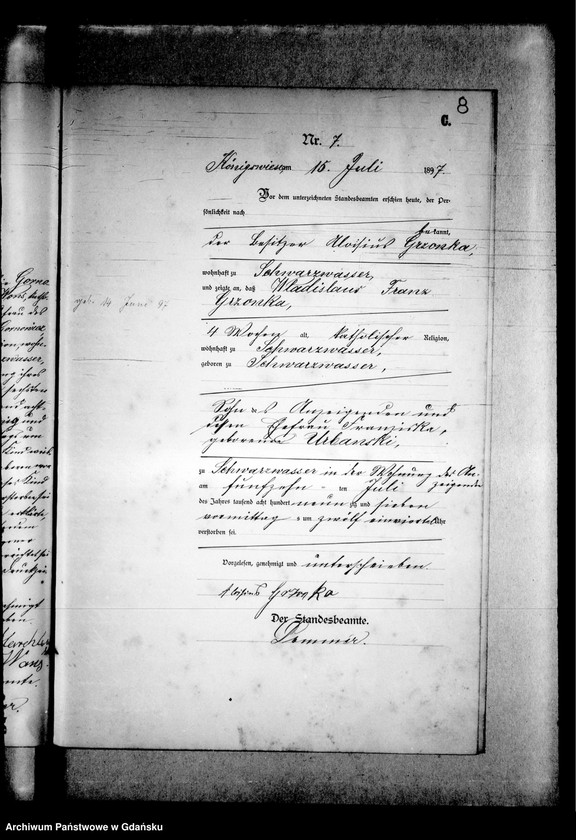 8
C.
Nr. 7.
Königswiese am 15. Juli 1897.
Vor dem unterzeichneten Standesbeamten erschien heute, der Per-
sönlichkeit nach
bekannt,
der Besitzer Aloisius Grzonka,
wohnhaft zu Schwarzwasser,
und zeigte an, daß Wladislaus Franz
Grzonka,
4 Wochen alt, katholischer Religion,
wohnhaft zu Schwarzwasser,
geboren zu Schwarzwasser,
geb. 14 Juni 97
Sohn des Anzeigenden und
dessen Ehefrau Franziska,
geborene Urbanski,
zu Schwarzwasser in der Wohnung des An-
zeigenden
am fünfzehn ten Juli
des Jahres tausend acht hundert neunzig und sieben
vormittag s um zwölf einviertel Uhr
verstorben sei.
Vorgelesen, genehmigt und unterschrieben
Aloisius Grzonka
Der Standesbeamte.
Archiwum Państwowe w Gdańsku